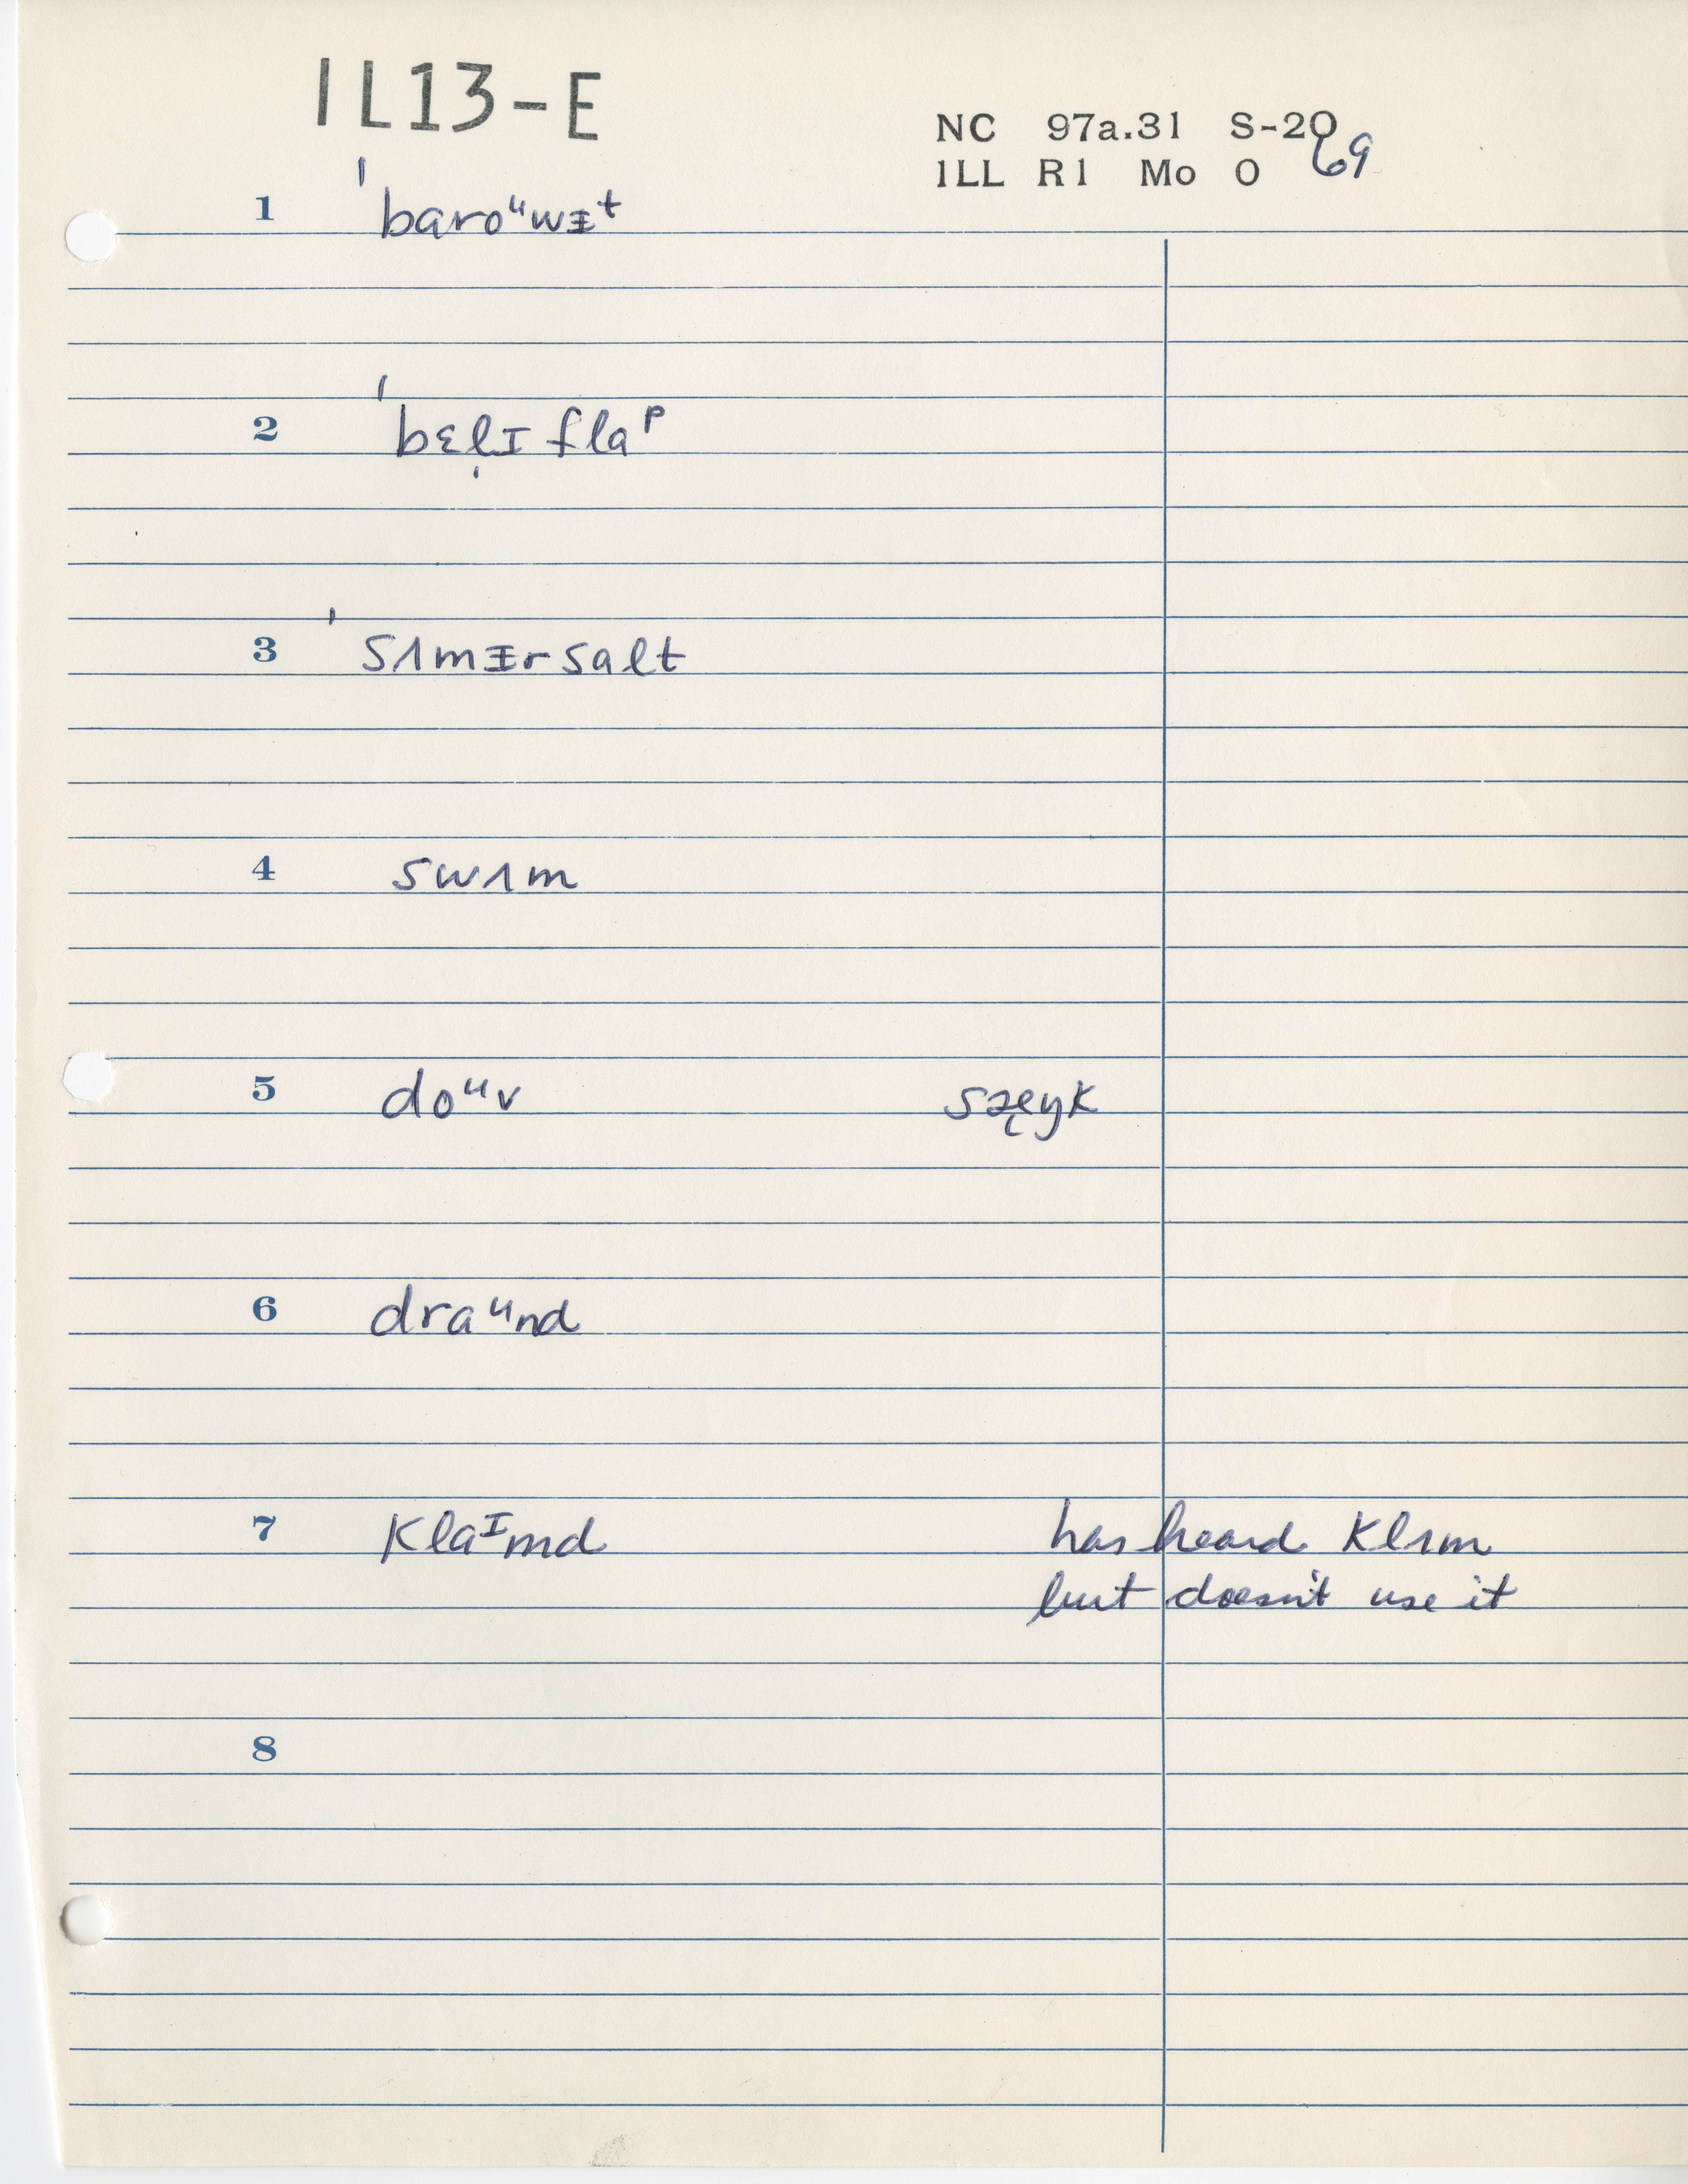 IL13-E
NC 97a.31 S-20
ILL R1 Mo O 69
1 ˈbaroᵘwᵻᵗ
2 ˈbɛl̩ɪ flaᵖ
3 ˈsʌmᵻrsalt
4 swʌm
5 doᵘv sæ̨ŋk
6 draᵘnd
7 klaᶦmd has heard klʌm
but doesn't use it
8